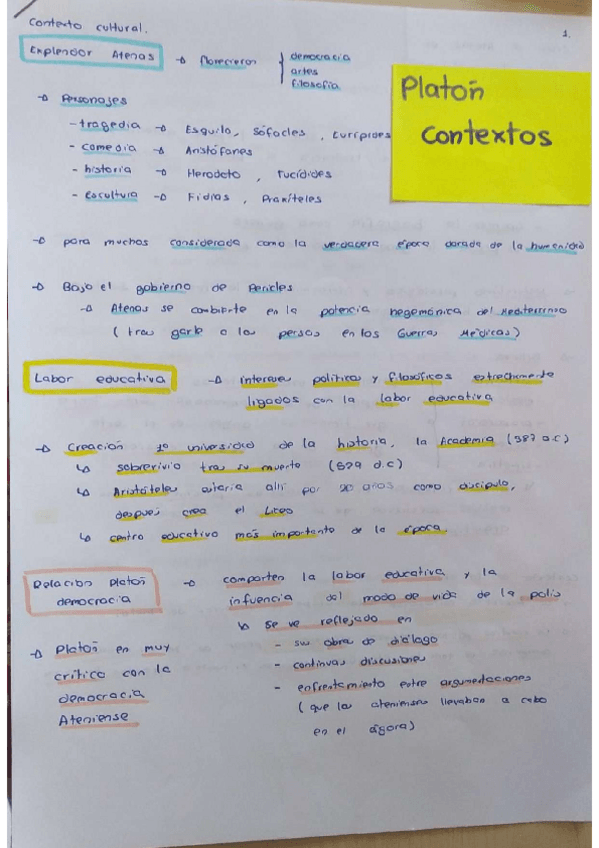 Contexto cultural.
1.
Esplendor Atenas → florecieron { democracia
artes
filosofía
Platón
Contextos
→ Personajes
- tragedia → Esquilo, Sófocles, Eurípides
- comedia → Aristófanes
- historia → Herodoto, Tucídides
- escultura → Fidias, Praxíteles
→ para muchos considerada como la verdadera época dorada de la humanidad
→ Bajo el gobierno de Pericles
→ Atenas se convierte en la potencia hegemónica del Mediterráneo
(tras ganar a los persas en las Guerras Médicas)
Labor educativa → intereses políticos y filosóficos estrechamente
ligados con la labor educativa
→ Creación 1º universidad de la historia, la Academia (387 a.C)
↳ sobrevivio tras su muerte (529 d.C)
↳ Aristóteles estaría allí por 20 años como discípulo,
después crea el Liceo
↳ centro educativo más importante de la época.
Relación Platón
democracia
→ comparten la labor educativa y la
infuencia del modo de vida de la polis
↳ se ve reflejado en
- su obra de diálogo
- continuas discusiones
- enfrentamiento entre argumentaciones
(que los atenienses llevaban a cabo
en el ágora)
→ Platón en muy
crítico con la
democracia
Ateniense